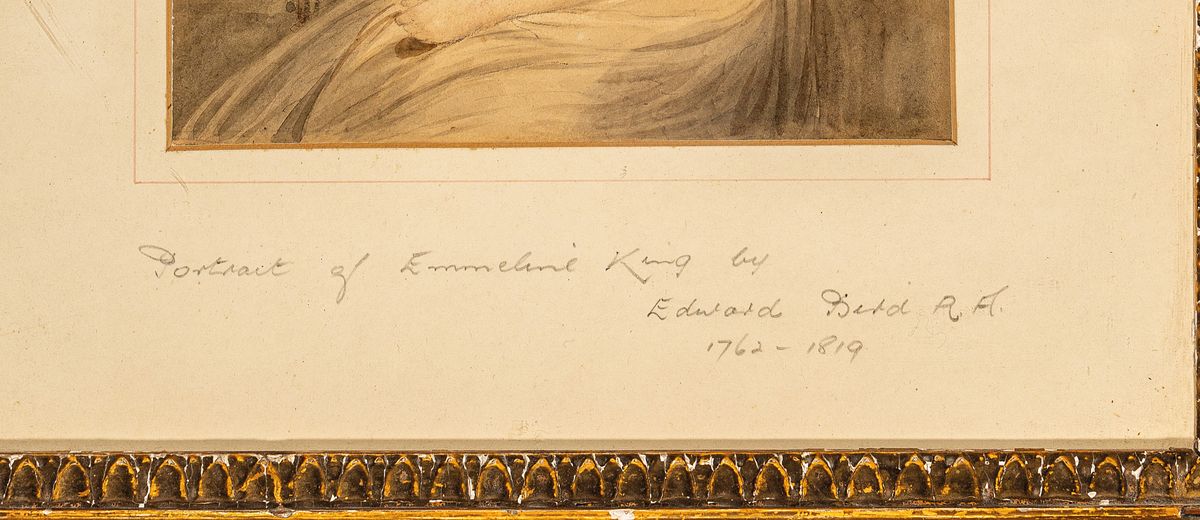 Portrait of Emmeline King by
Edward Bird R.A.
1762 - 1819